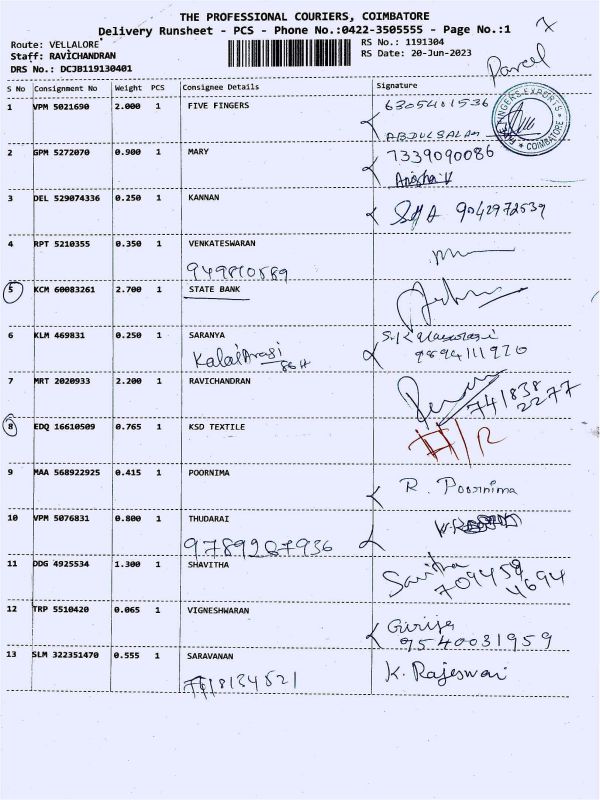 THE PROFESSIONAL COURIERS, COIMBATORE
Delivery Runsheet - PCS - Phone No.:0422-3505555 - Page No.:1
Route: VELLALORE RS No.: 1191304
Staff: RAVICHANDRAN RS Date: 20-Jun-2023
DRS No.: DCJB119130401
Parcel
S No Consignment No Weight PCS Consignee Details Signature
1 VPM 5021690 2.000 1 FIVE FINGERS 6305401536
ABDULSALAM
FIVE FINGERS EXPORTS * COIMBATORE *
2 GPM 5272070 0.900 1 MARY 7339090086
Anisha V
3 DEL 529074336 0.250 1 KANNAN 9042972539
4 RPT 5210355 0.350 1 VENKATESWARAN
949810589
5 KCM 60083261 2.700 1 STATE BANK
6 KLM 469831 0.250 1 SARANYA
KalaiArasi 9894111920
86H
7 MRT 2020933 2.200 1 RAVICHANDRAN
741838
2277
8 EDQ 16610509 0.765 1 KSD TEXTILE H/R
9 MAA 568922925 0.415 1 POORNIMA R. Poornima
10 VPM 5076831 0.800 1 THUDARAI
9789207936
11 DDG 4925534 1.300 1 SHAVITHA Savitha
709459
4694
12 TRP 5510420 0.065 1 VIGNESHWARAN Girija
9540031959
13 SLM 322351470 0.555 1 SARAVANAN K. Rajeswari